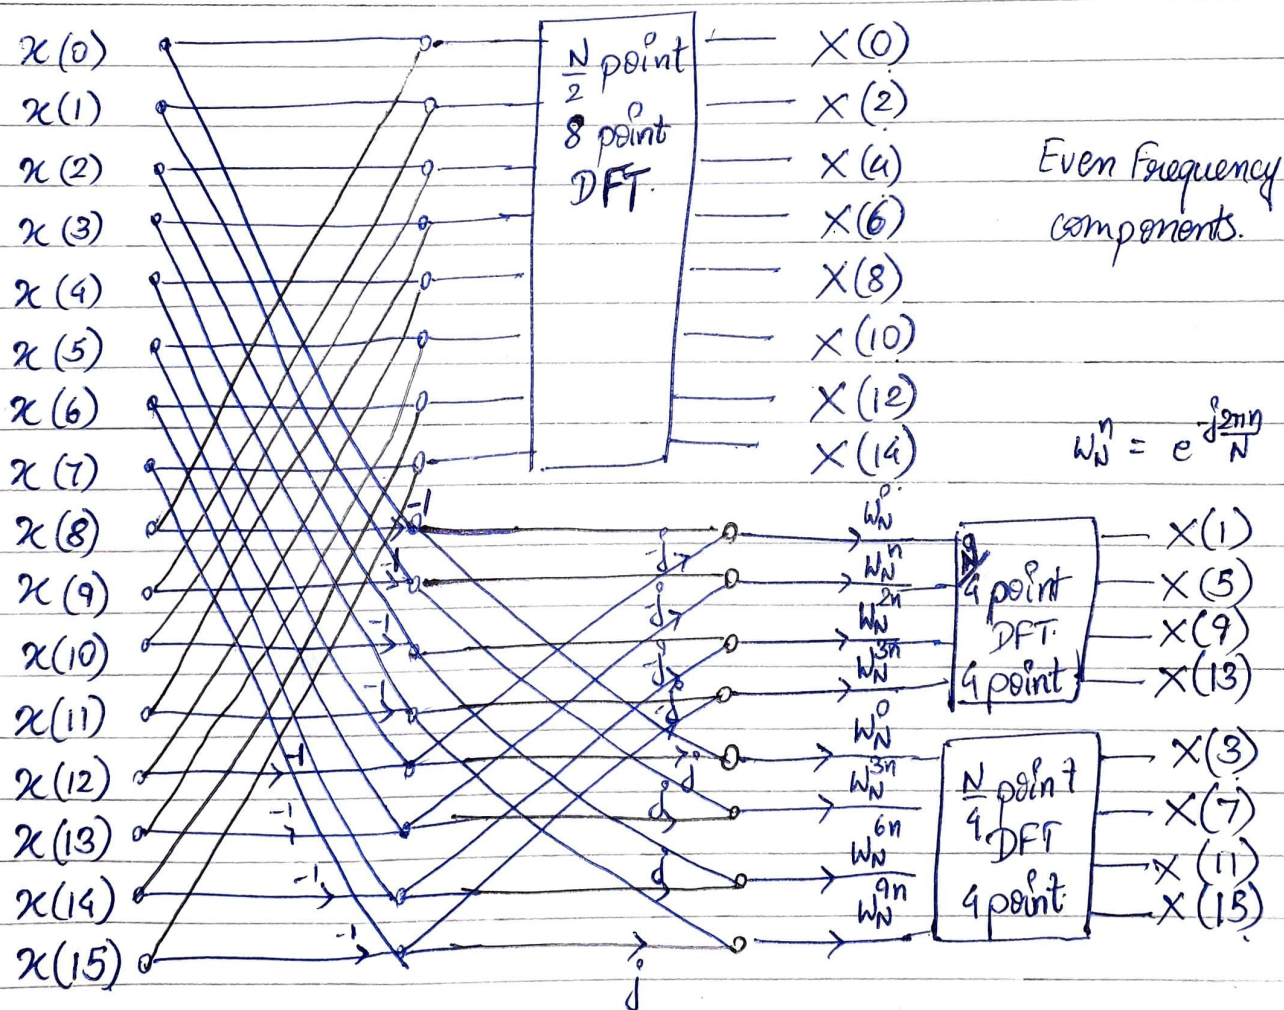 x(0)
x(1)
x(2)
x(3)
x(4)
x(5)
x(6)
x(7)
x(8)
x(9)
x(10)
x(11)
x(12)
x(13)
x(14)
x(15)
N/2 point
8 point
DFT.
X(0)
X(2)
X(4)
X(6)
X(8)
X(10)
X(12)
X(14)
Even Frequency
components.
W_N^n = e^{-j2πn/N}
-1
-1
-1
-1
-1
-1
-1
-1
-j
-j
-j
-j
j
j
j
j
W_N^0
W_N^n
W_N^{2n}
W_N^{3n}
N/4 point
DFT.
4 point
X(1)
X(5)
X(9)
X(13)
W_N^0
W_N^{3n}
W_N^{6n}
W_N^{9n}
N/4 point
DFT
4 point
X(3)
X(7)
X(11)
X(15)